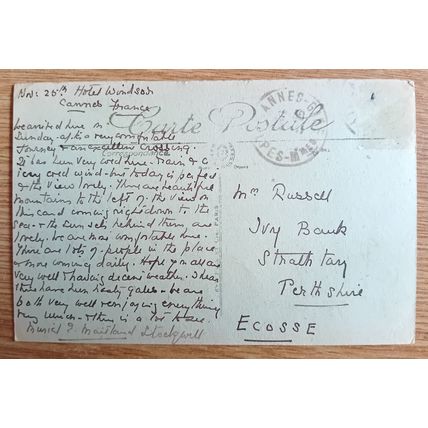 Nov: 25th Hotel Windsor
Cannes France
Carte Postale
CANNES-
ALPES-Mmes
CORRESPONDANCE
we arrived here on
Sunday - after a very comfortable
journey & an excellent crossing
It has been very cold here - Rain & a
very cold wind - but today is perfect
& the view lovely. There are beautiful
mountains to the left of the view on
this card coming right down to the
sea - & the sunsets behind them are
lovely. We are most comfortable here.
There are lots of people in the place
& more coming daily. Hope you are
very well & having decent weather. I hear
they have been gales - we are
both very well & enjoying everything
very much - & there is a lot to see.
Muriel Maitland Stockwell
Mrs Russell
Ivy Bank
Strathtay
Perthshire
ECOSSE